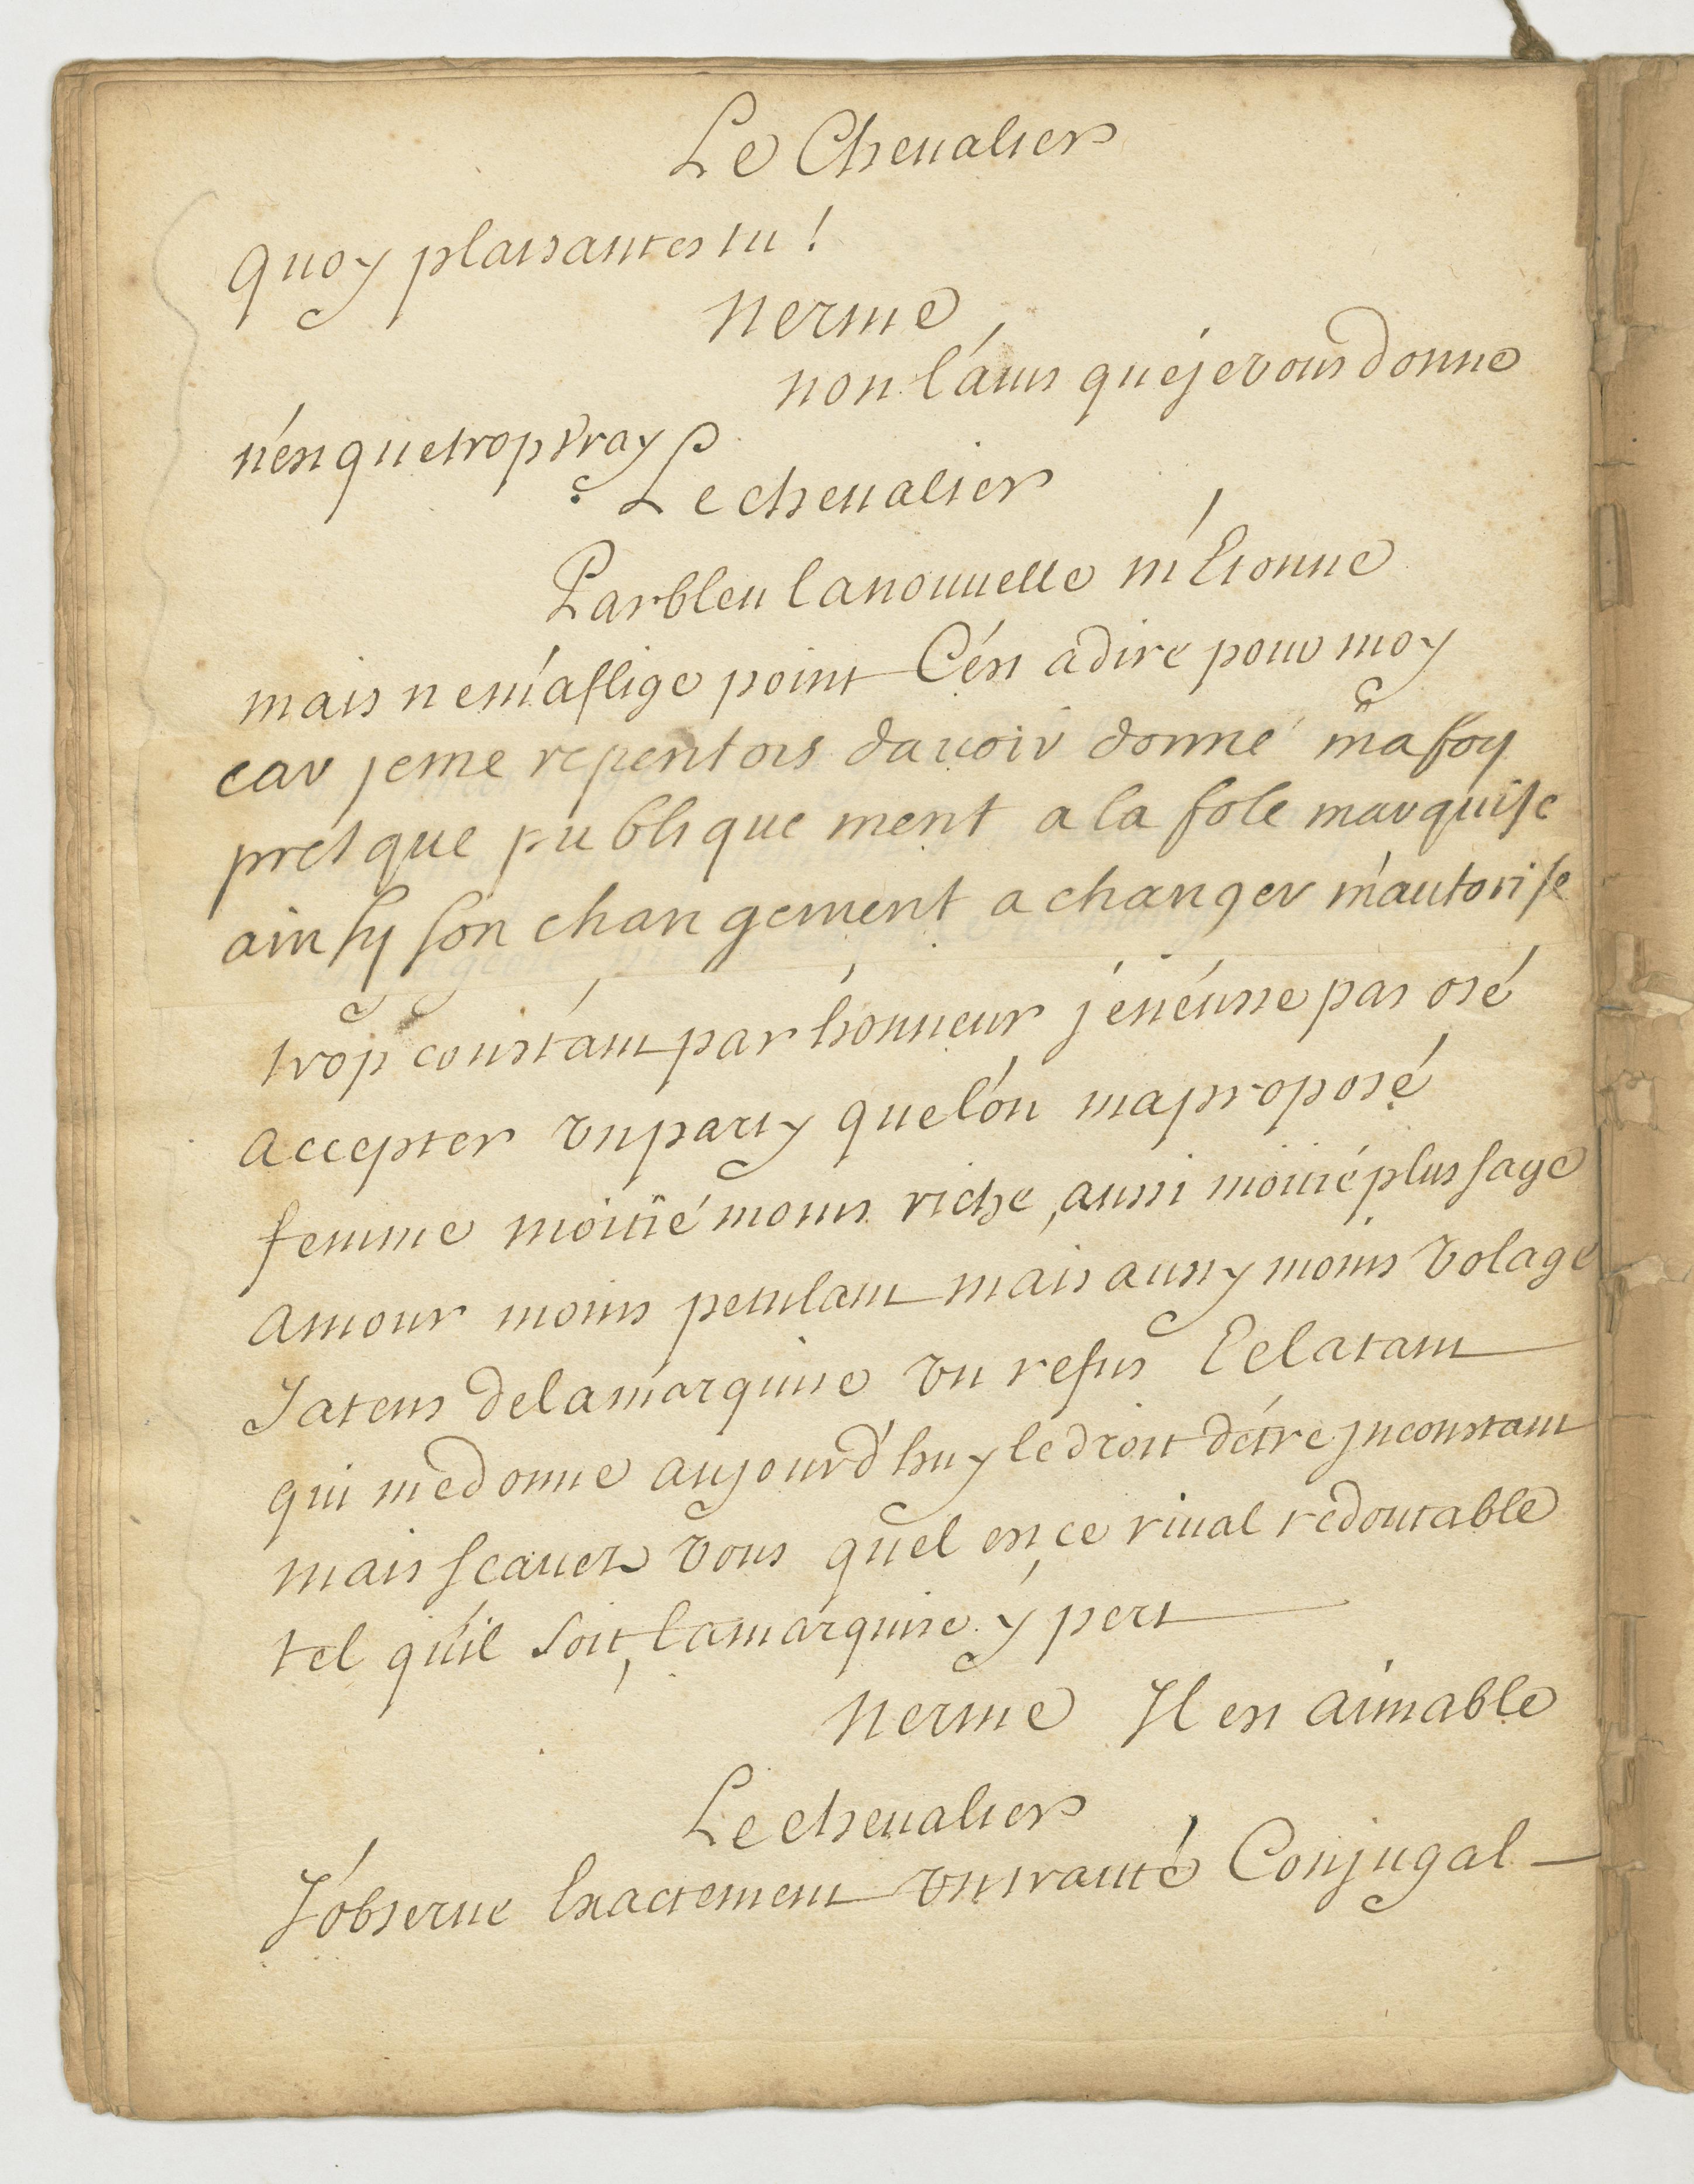 Le Cheualier
quoy plaisantes tu !
nerine
non l'auis que je vous donne
n'est que trop vray
Le cheualier
Parbleu la nouuelle m'Etonne
mais ne m'aflige point C'est a dire pour moy
car jeme repentois dauoir donné ma foy
presque publiquement a la fole marquise
ainsy son changement a changer m'autorise
trop constant par honneur je n'eusse pas osé
accepter vn party que l'on ma proposé
femme moitié moins riche, aussi moitié plus sage
amour moins petulant mais aussy moins volage
Jatens de la marquise vn refus Eclatant
qui me donne aujourd'huy le droit d'être jnconstant
mais scauez vous quel est ce riual redoutable
tel qu'il soit, la marquise y pert
nerine Il est aimable
Le cheualier
J'obserue Exactement vn traité Conjugal